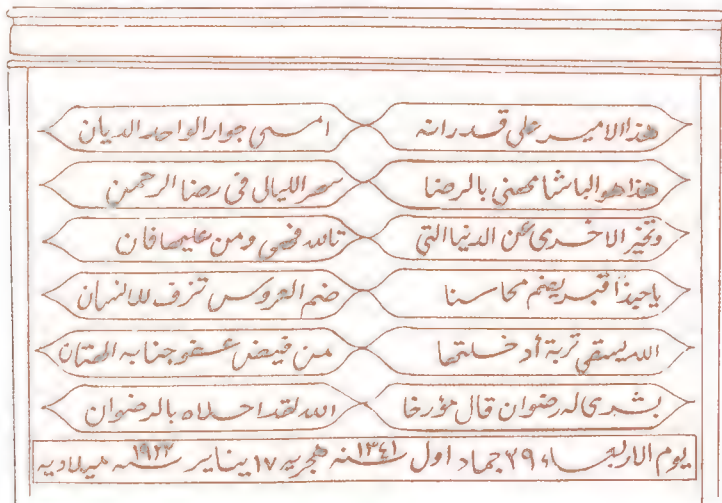 هذا الامير على قدرانه امسى جوار الواحد الديان
هذا هو الباشا محسنى بالرضا سهر الليال فى رضا الرحمن
وتخير الاخرى عن الدنيا التى تالله فهى ومن عليها فان
ياحبذا قبر يضم محاسنا ضم العروس تزف للانهان
الله يسقى تربة أدخلتها من فيض عفو جنابه الهتان
بشرى له رضوان قال مؤرخا الله لقد احلاه بالرضوان
يوم الاربعاء ٢٩ جماد اول سنه ١٣٤١ هجريه ١٧ يناير سنه ١٩٢٢ ميلاديه